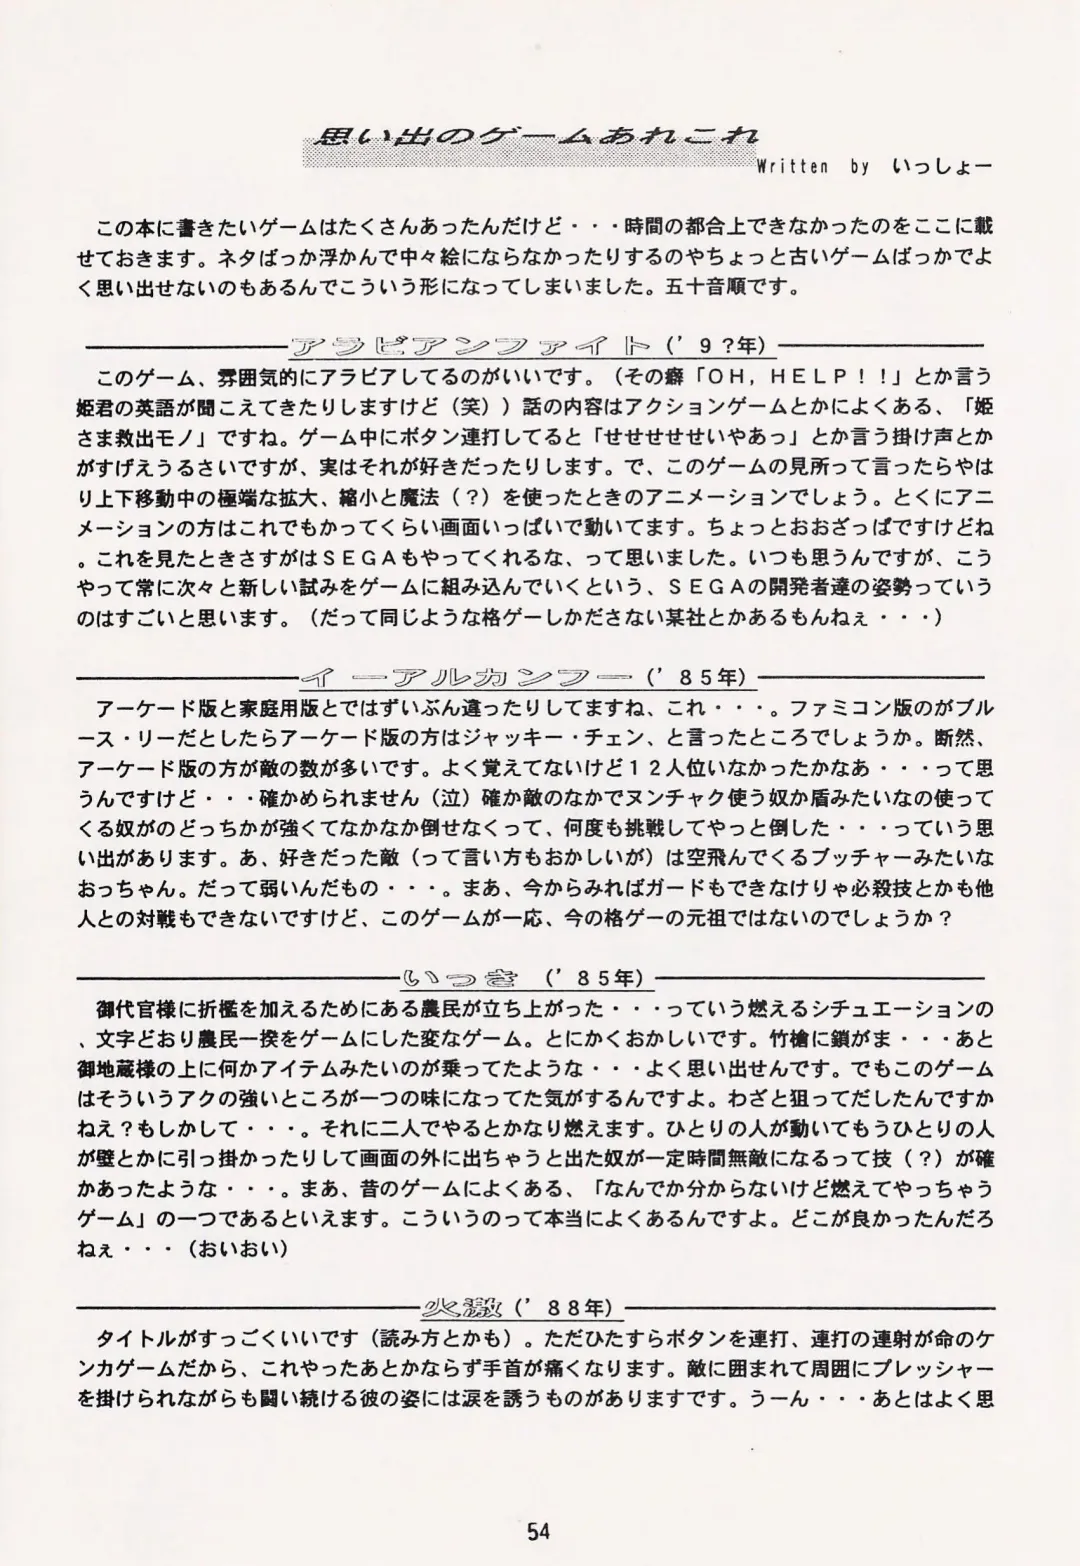 思い出のゲームあれこれ
Written by いっしょー
この本に書きたいゲームはたくさんあったんだけど・・・時間の都合上できなかったのをここに載
せておきます。ネタばっか浮かんで中々絵にならなかったりするのやちょっと古いゲームばっかでよ
く思い出せないのもあるんでこういう形になってしまいました。五十音順です。
アラビアンファイト（’９？年）
このゲーム、雰囲気的にアラビアしてるのがいいです。（その癖「ＯＨ，ＨＥＬＰ！！」とか言う
姫君の英語が聞こえてきたりしますけど（笑））話の内容はアクションゲームとかによくある、「姫
さま救出モノ」ですね。ゲーム中にボタン連打してると「せせせせせいやあっ」とか言う掛け声とか
がすげえうるさいですが、実はそれが好きだったりします。で、このゲームの見所って言ったらやは
り上下移動中の極端な拡大、縮小と魔法（？）を使ったときのアニメーションでしょう。とくにアニ
メーションの方はこれでもかってくらい画面いっぱいで動いてます。ちょっとおおざっぱですけどね
。これを見たときさすがはＳＥＧＡもやってくれるな、って思いました。いつも思うんですが、こう
やって常に次々と新しい試みをゲームに組み込んでいくという、ＳＥＧＡの開発者達の姿勢っていう
のはすごいと思います。（だって同じような格ゲーしかださない某社とかあるもんねぇ・・・）
イーアルカンフー（’８５年）
アーケード版と家庭用版とではずいぶん違ったりしてますね、これ・・・。ファミコン版のがブル
ース・リーだとしたらアーケード版の方はジャッキー・チェン、と言ったところでしょうか。断然、
アーケード版の方が敵の数が多いです。よく覚えてないけど１２人位いなかったかなあ・・・って思
うんですけど・・・確かめられません（泣）確か敵のなかでヌンチャク使う奴か盾みたいなの使って
くる奴がのどっちかが強くてなかなか倒せなくって、何度も挑戦してやっと倒した・・・っていう思
い出があります。あ、好きだった敵（って言い方もおかしいが）は空飛んでくるブッチャーみたいな
おっちゃん。だって弱いんだもの・・・。まあ、今からみればガードもできなけりゃ必殺技とかも他
人との対戦もできないですけど、このゲームが一応、今の格ゲーの元祖ではないのでしょうか？
いっき（’８５年）
御代官様に折檻を加えるためにある農民が立ち上がった・・・っていう燃えるシチュエーションの
、文字どおり農民一揆をゲームにした変なゲーム。とにかくおかしいです。竹槍に鎖がま・・・あと
御地蔵様の上に何かアイテムみたいのが乗ってたような・・・よく思い出せんです。でもこのゲーム
はそういうアクの強いところが一つの味になってた気がするんですよ。わざと狙ってだしたんですか
ねえ？もしかして・・・。それに二人でやるとかなり燃えます。ひとりの人が動いてもうひとりの人
が壁とかに引っ掛かったりして画面の外に出ちゃうと出た奴が一定時間無敵になるって技（？）が確
かあったような・・・。まあ、昔のゲームによくある、「なんでか分からないけど燃えてやっちゃう
ゲーム」の一つであるといえます。こういうのって本当によくあるんですよ。どこが良かったんだろ
ねぇ・・・（おいおい）
火激（’８８年）
タイトルがすっごくいいです（読み方とかも）。ただひたすらボタンを連打、連打の連射が命のケ
ンカゲームだから、これやったあとかならず手首が痛くなります。敵に囲まれて周囲にプレッシャー
を掛けられながらも闘い続ける彼の姿には涙を誘うものがありますです。うーん・・・あとはよく思
54